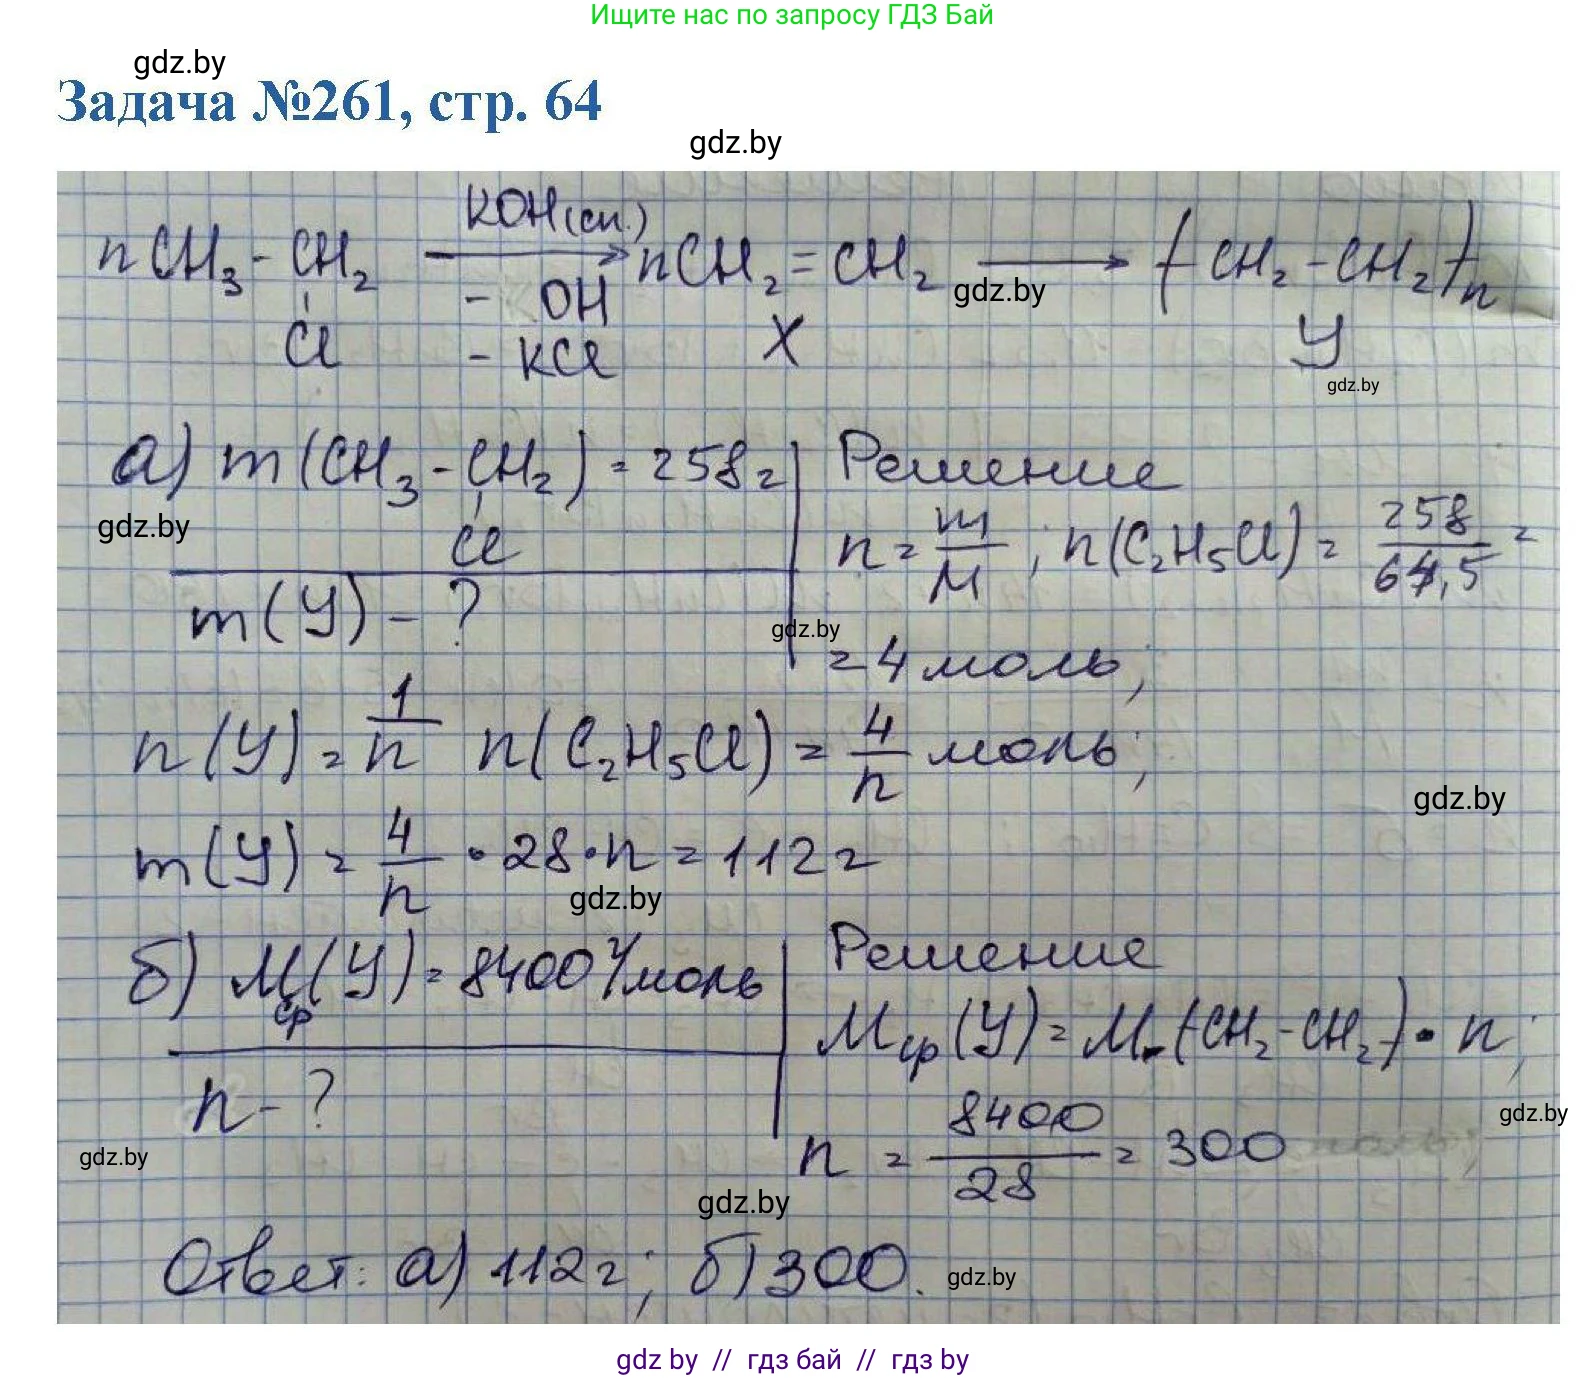 Ищите нас по запросу ГДЗ Бай
gdz.by
Задача №261, стр. 64
gdz.by
nCH₃-CH₂ KOH(сп.) nCH₂=CH₂ → (-CH₂-CH₂-)n
gdz.by
Cl - OH - KCl X У
gdz.by
а) m(CH₃-CH₂) = 258г Решение
gdz.by
Cl n = m/M ; n(C₂H₅Cl) = 258/64,5 =
m(У) - ?
gdz.by
= 4 моль;
n(У) = 1/n n(C₂H₅Cl) = 4/n моль;
gdz.by
m(У) = 4/n · 28 · n = 112 г
gdz.by
б) Mср(У) = 8400 г/моль Решение
Mср(У) = M(-CH₂-CH₂-) · n;
n - ?
gdz.by
n = 8400/28 = 300
gdz.by
gdz.by
Ответ: а) 112г; б) 300.
gdz.by
gdz by // гдз бай // гдз by